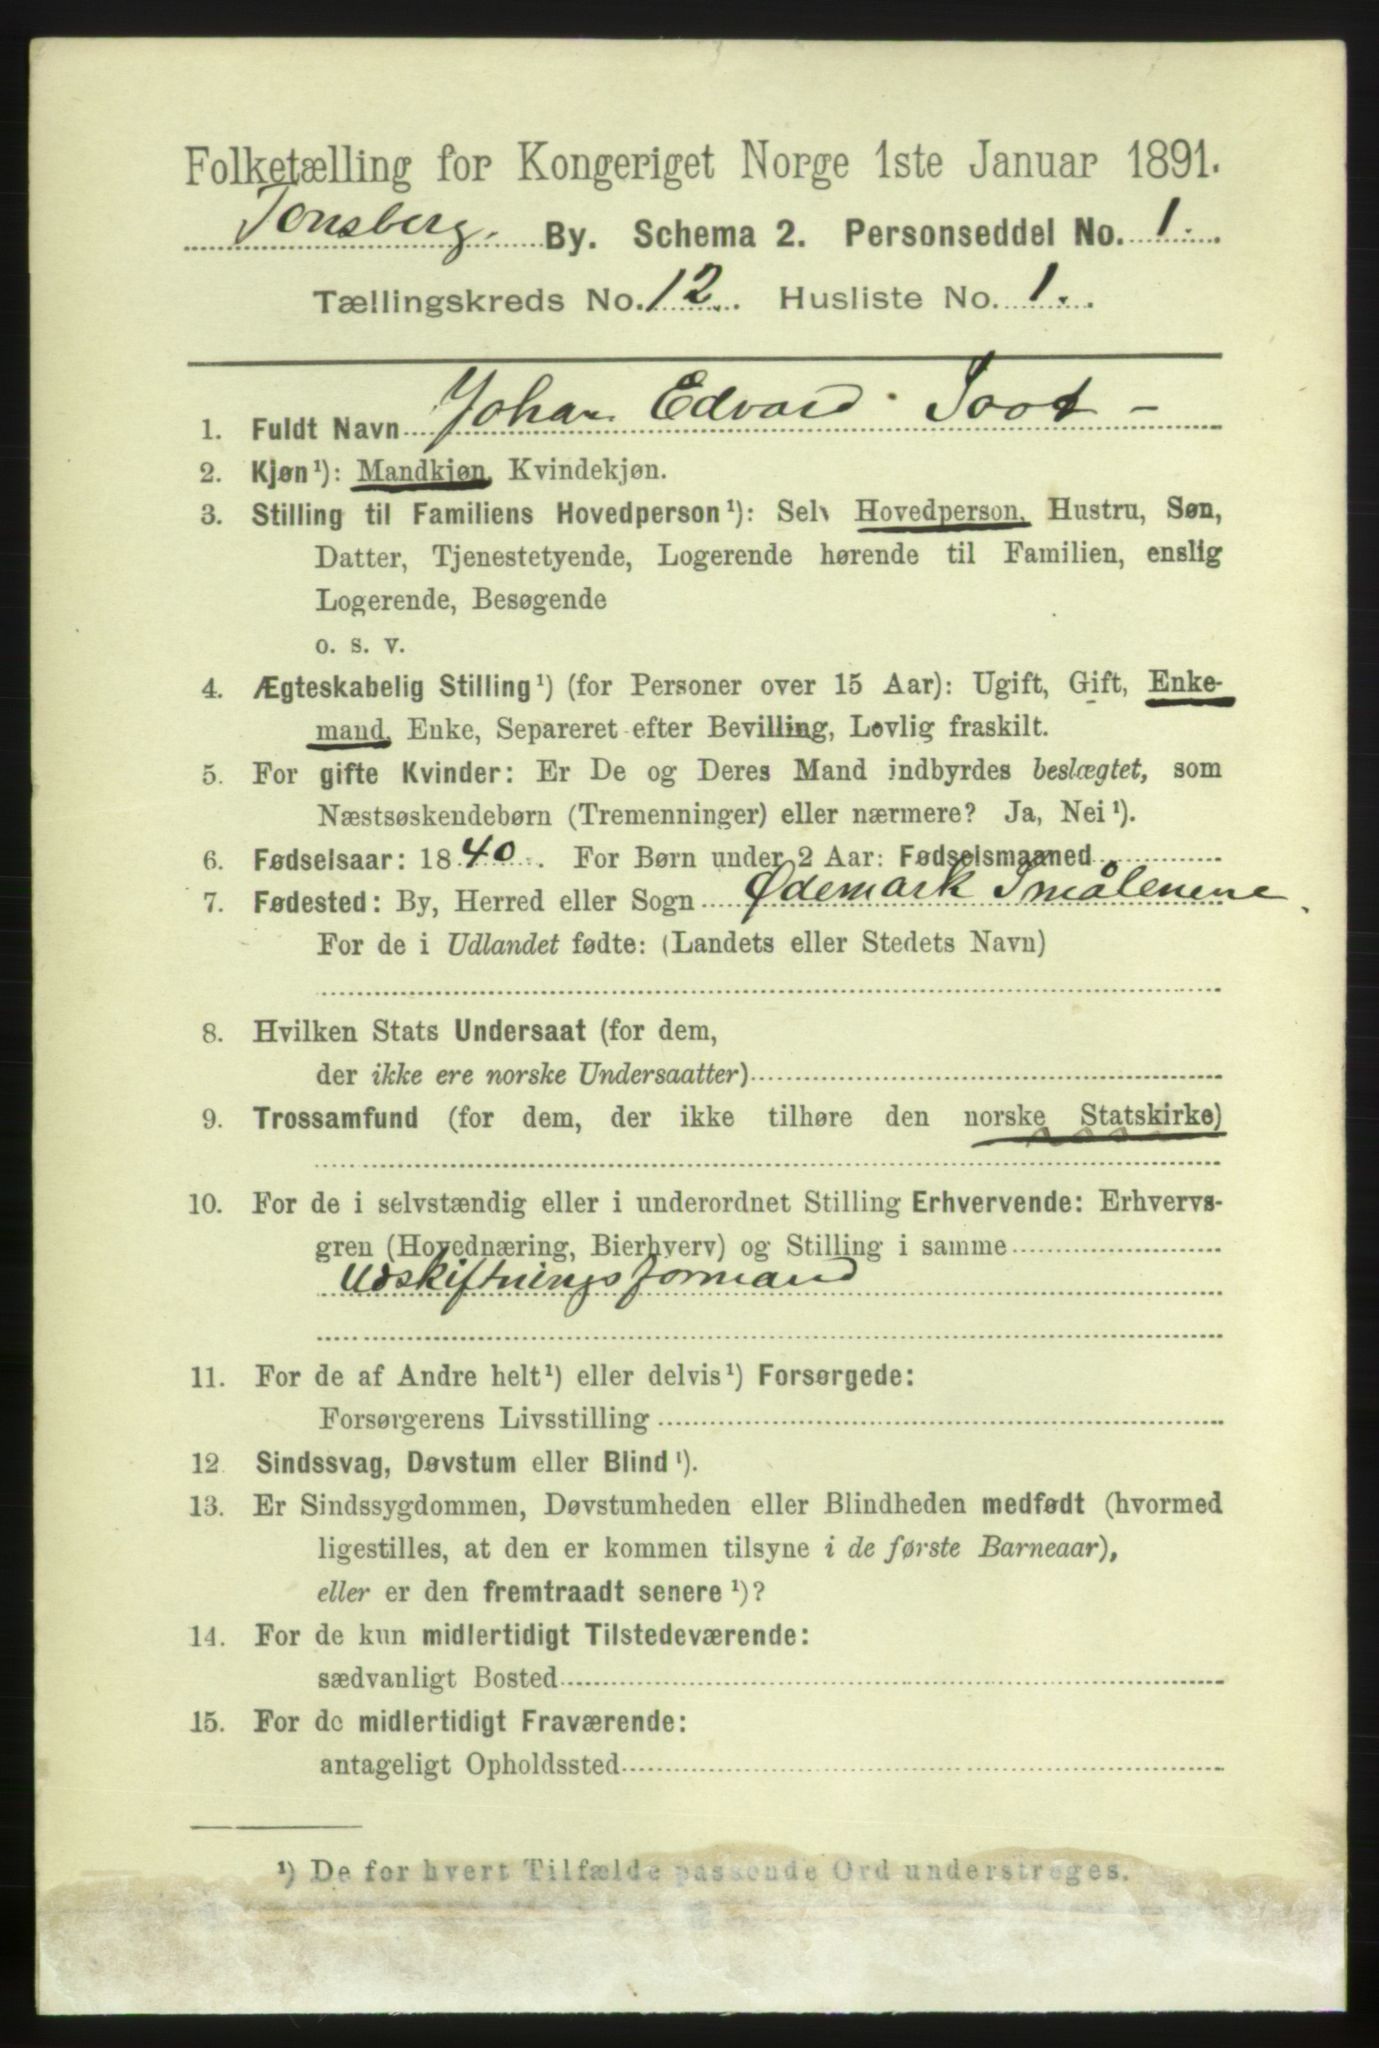 Folketælling for Kongeriget Norge 1ste Januar 1891.
Tønsberg. By. Schema 2. Personseddel No. 1.
Tællingskreds No. 12. Husliste No. 1.
1. Fuldt Navn Johan Edvard Soot -
2. Kjøn¹): Mandkjøn, Kvindekjøn.
3. Stilling til Familiens Hovedperson¹): Selv Hovedperson, Hustru, Søn,
Datter, Tjenestetyende, Logerende hørende til Familien, enslig
Logerende, Besøgende
o. s. v.
4. Ægteskabelig Stilling¹) (for Personer over 15 Aar): Ugift, Gift, Enke-
mand, Enke, Separeret efter Bevilling, Lovlig fraskilt.
5. For gifte Kvinder: Er De og Deres Mand indbyrdes beslægtet, som
Næstsøskendebørn (Tremenninger) eller nærmere? Ja, Nei¹).
6. Fødselsaar: 1840. For Børn under 2 Aar: Fødselsmaaned
7. Fødested: By, Herred eller Sogn Ødemark Smålenene
For de i Udlandet fødte: (Landets eller Stedets Navn)
8. Hvilken Stats Undersaat (for dem,
der ikke ere norske Undersaatter)
9. Trossamfund (for dem, der ikke tilhøre den norske Statskirke)
10. For de i selvstændig eller i underordnet Stilling Erhvervende: Erhvervs-
gren (Hovednæring, Bierhverv) og Stilling i samme
Udskiftningsformand
11. For de af Andre helt¹) eller delvis¹) Forsørgede:
Forsørgerens Livsstilling
12 Sindssvag, Døvstum eller Blind¹).
13. Er Sindssygdommen, Døvstumheden eller Blindheden medfødt (hvormed
ligestilles, at den er kommen tilsyne i de første Barneaar),
eller er den fremtraadt senere¹)?
14. For de kun midlertidigt Tilstedeværende:
sædvanligt Bosted
15. For de midlertidigt Fraværende:
antageligt Opholdssted
¹) De for hvert Tilfælde passende Ord understreges.